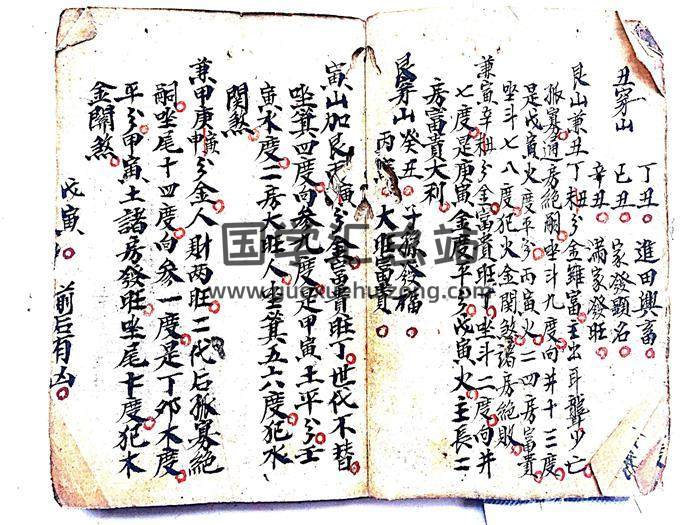 丑穿山
丁丑 進田興畜
己丑 家發顯名
辛丑 滿家發旺
艮山兼丑丁 分金雖富主出耳聾少亡
孤寡通房絕嗣坐斗九度向井十三度
是戊寅火度平分丙寅火二四房富貴
坐斗七八度犯火金関煞諸房絕敗
兼寅辛 分金富貴旺丁坐斗二度向井
七度是庚寅金 平分戊寅火主長二
房富貴大利
艮穿山 癸丑 子孫發福
丙 大旺富貴
寅山加艮 寅分金富貴旺丁世代不替
坐箕四度向参九度是甲寅土平分壬
寅水度二房大旺人 坐箕五六度犯水
関煞
兼甲庚 寅申分金人財两旺二代后孤寡絕
嗣坐尾十四度向参一度是丁卯木度
平分甲寅土諸房發旺坐尾十度犯木
金関煞
戊寅 前后有凶
国学汇总站
www.guoxuehuizong.com